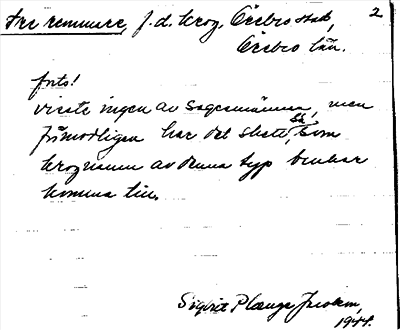 Tre remmare, f.d. krog, Örebro stad, 2
Örebro län.
forts!
visste ingen av sagesmännen, men
förmodligen har det skett så, som
krognamn av denna typ brukar
komma till.
Sigrid Plænge Jacobson,
1944.